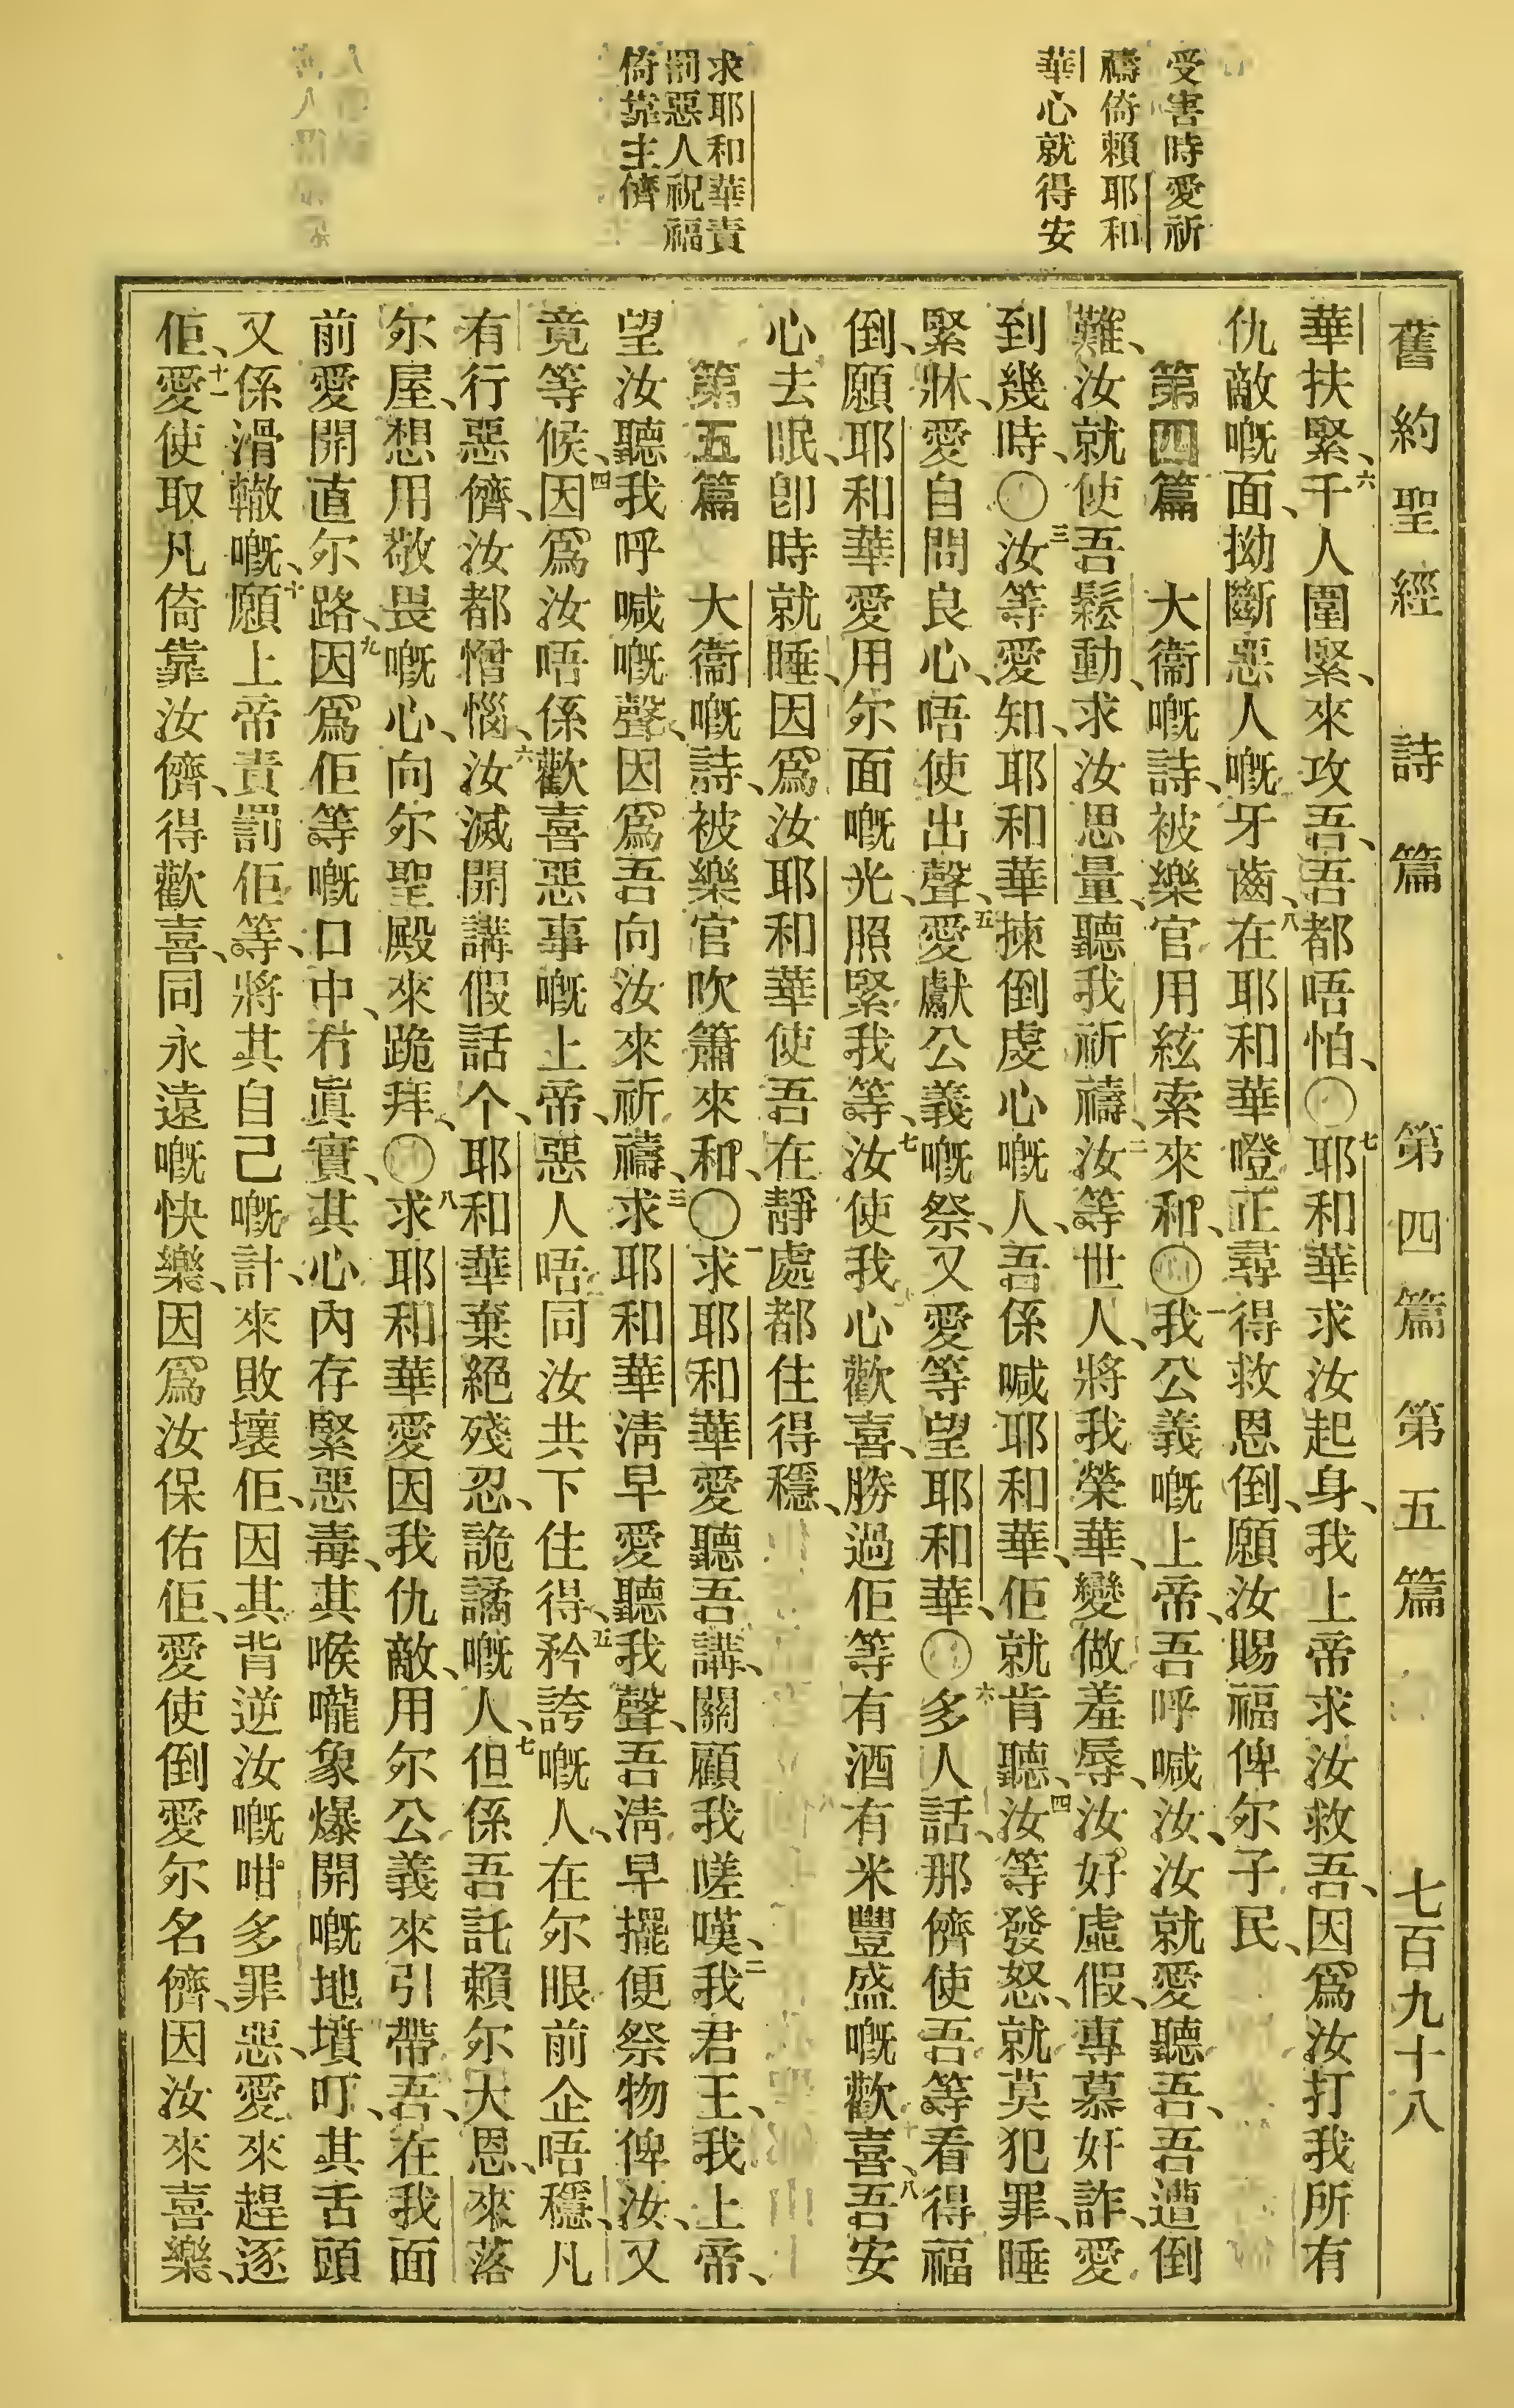 受害時愛祈
禱倚賴耶和
華心就得安
求耶和華責
罰惡人祝福
倚靠主儕
舊約聖經 詩篇 第四篇 第五篇 七百九十八
華扶緊、六千人圍緊、來攻吾、吾都唔怕、〇七耶和華求汝起身、我上帝求汝救吾、因爲汝打我所有
仇敵嘅面、拗斷惡人嘅牙齒、八在耶和華嶝正尋得救恩倒、願汝賜福俾尔子民、
第四篇 大衞嘅詩、被樂官用絃索來和、〇一我公義嘅上帝、吾呼喊汝、汝就愛聽吾、吾遭倒
難、汝就使吾鬆動、求汝思量、聽我祈禱、二汝等世人、將我榮華、變做羞辱、汝好虛假、專慕奸詐、愛
到幾時、〇三汝等愛知、耶和華揀倒虔心嘅人、吾係喊耶和華、佢就肯聽、四汝等發怒、就莫犯罪、睡
緊牀、愛自問良心、唔使出聲、五愛獻公義嘅祭、又愛等望耶和華、〇六多人話、那儕使吾等看得福
倒、願耶和華愛用尔面嘅光、照緊我等、七汝使我心歡喜、勝過佢等有酒有米豐盛嘅歡喜、八吾安
心去眠、卽時就睡、因爲汝耶和華使吾在靜處都住得穩、
第五篇 大衞嘅詩、被樂官吹簫來和、〇一求耶和華愛聽吾講、關顧我嗟嘆、二我君王、我上帝、
望汝聽我呼喊嘅聲、因爲吾向汝來祈禱、三求耶和華淸早愛聽我聲、吾淸早擺便祭物俾汝、又
竟等候、四因爲汝唔係歡喜惡事嘅上帝、惡人唔同汝共下住得、五矜誇嘅人、在尔眼前企唔穩、凡
有行惡儕、汝都憎惱、六汝滅開講假話个、耶和華棄絕殘忍、詭譎嘅人、七但係吾託賴尔大恩、來落
尔屋、想用敬畏嘅心、向尔聖殿來跪拜、〇八求耶和華愛因我仇敵、用尔公義來引帶吾、在我面
前愛開直尔路、九因爲佢等嘅口中、冇眞實、其心內存緊惡毒、其喉嚨象爆開嘅地墳叮、其舌頭
又係滑轍嘅、十願上帝責罰佢等、將其自己嘅計、來敗壞佢、因其背逆汝嘅咁多罪惡、愛來趕逐
佢、十一愛使取凡倚靠汝儕、得歡喜、同永遠嘅快樂、因爲汝保佑佢、愛使倒愛尔名儕、因汝來喜樂、